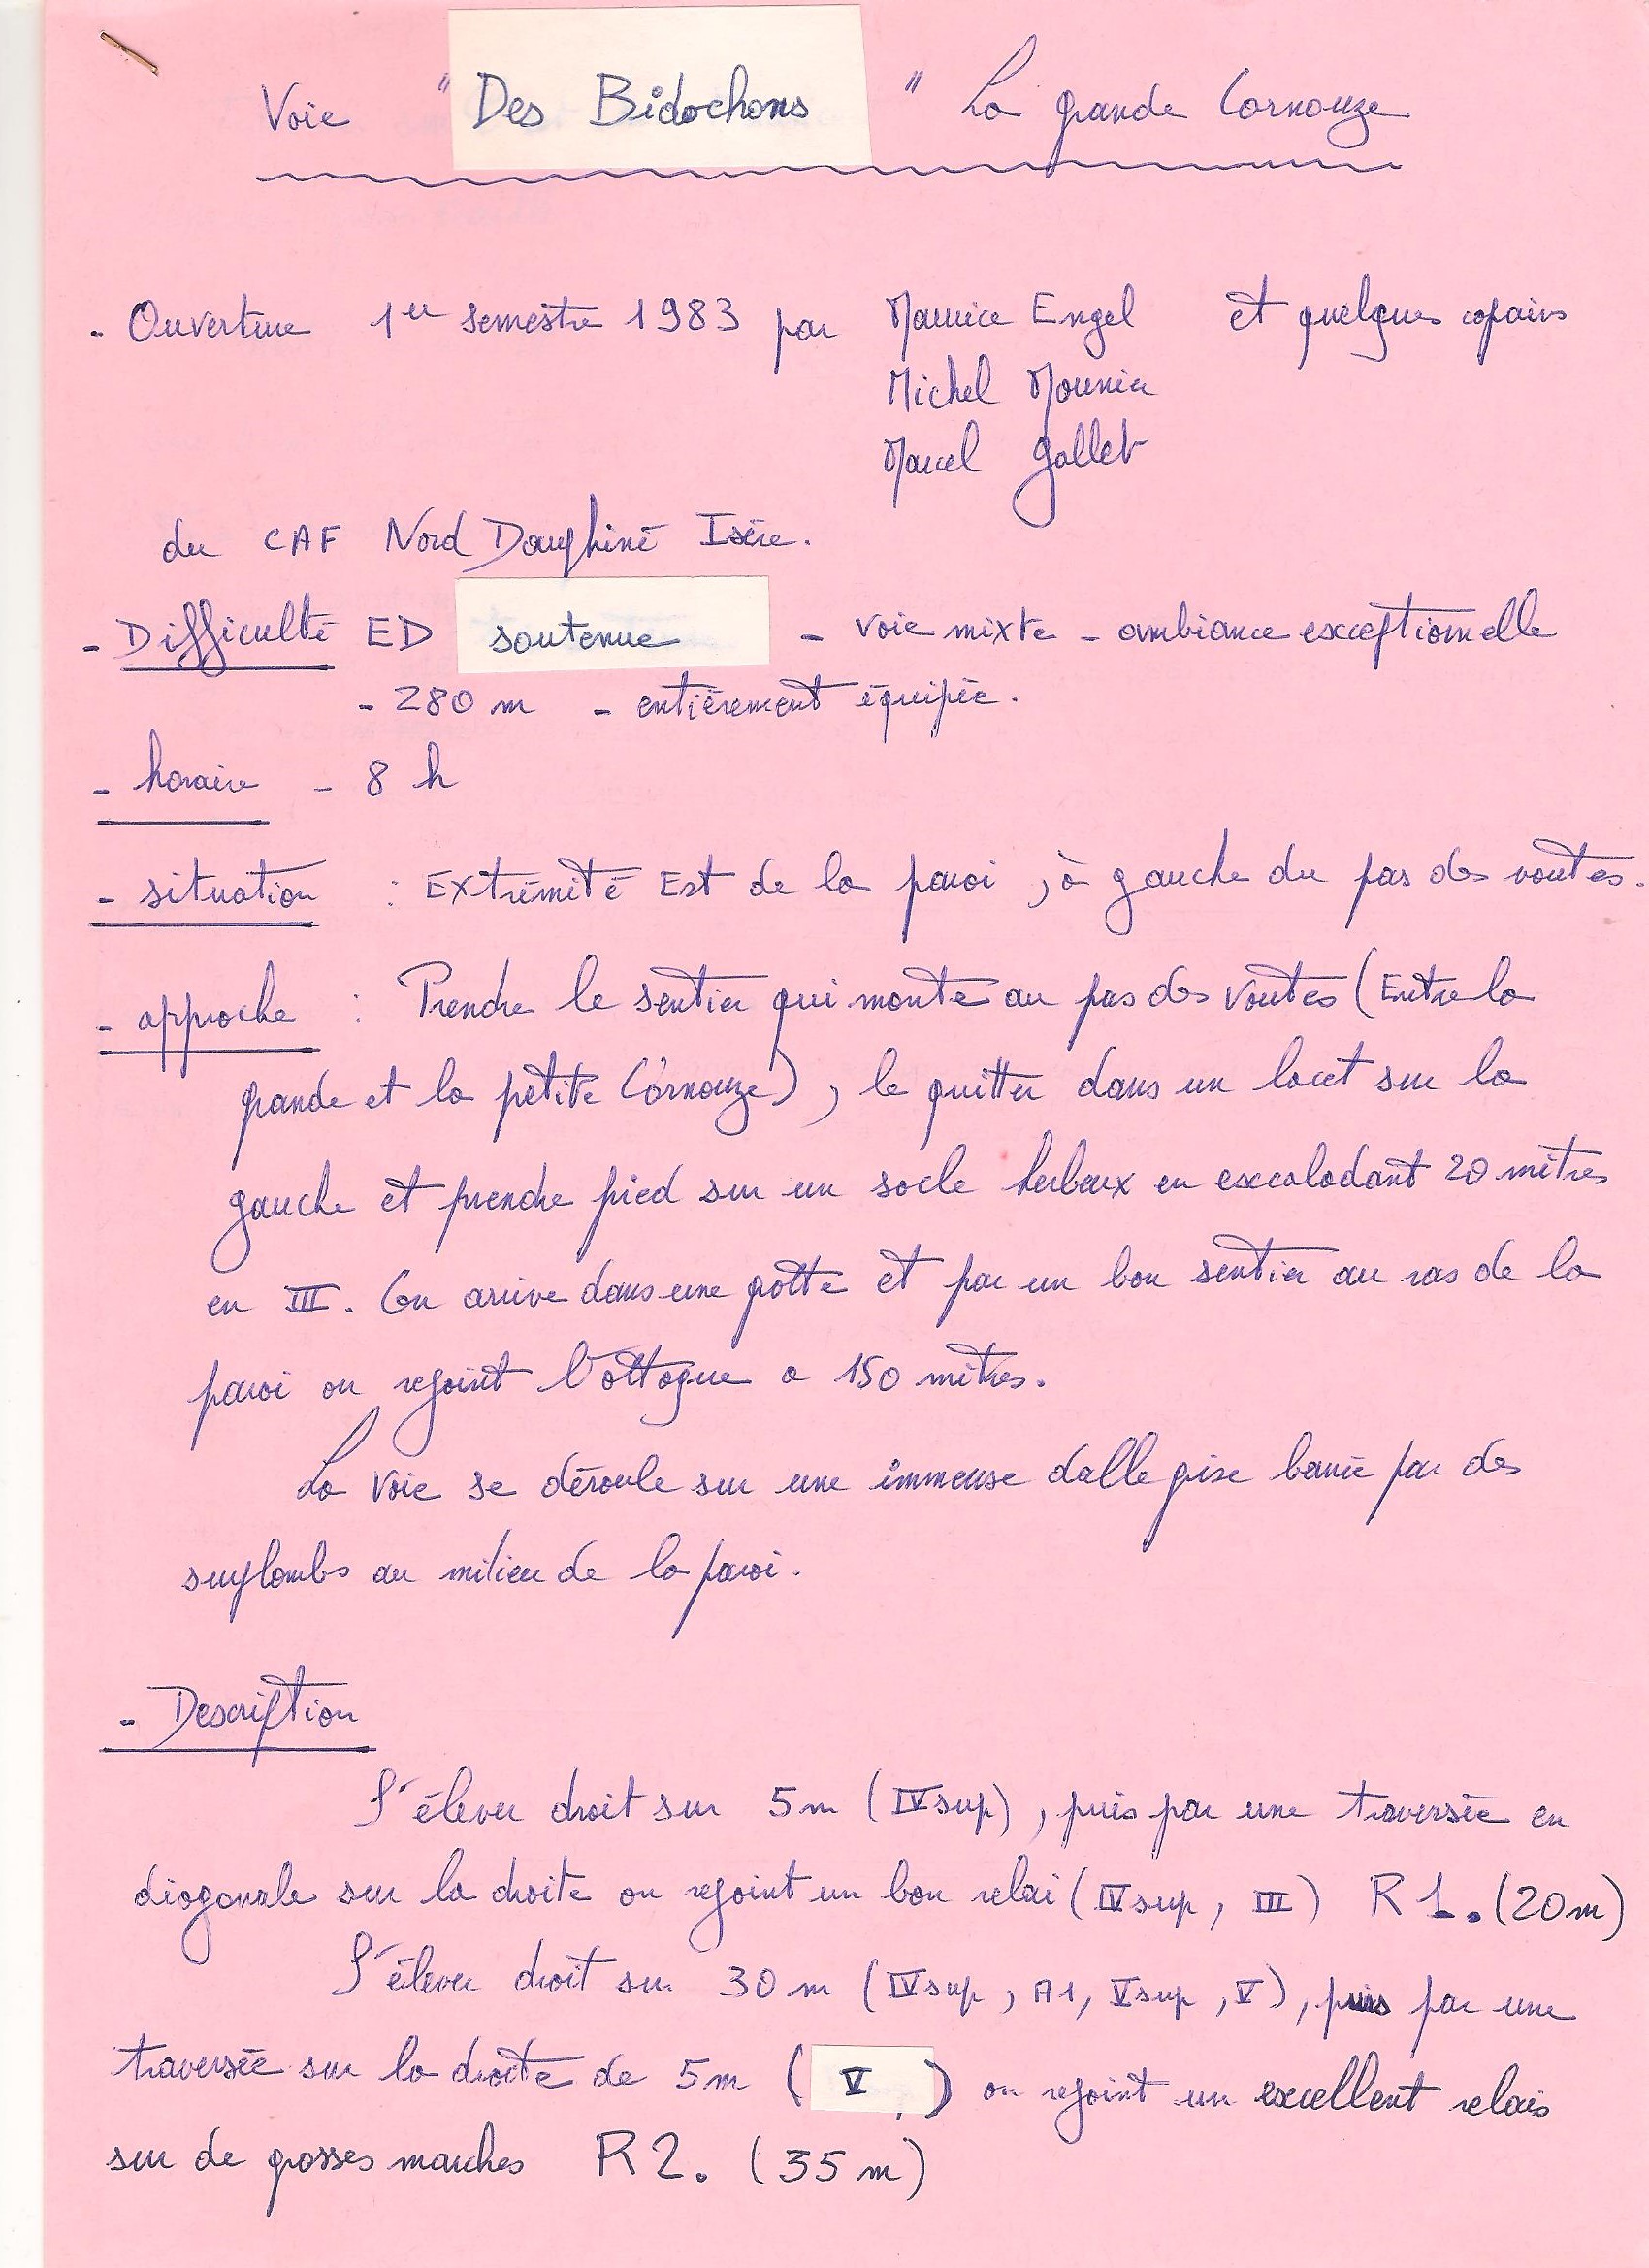 Voie " Des Bidochons " La grande Cornouze
- Ouverture 1er semestre 1983 par Maurice Engel et quelques copains
Michel Mounier
Marcel Gallet
du CAF Nord Dauphiné Isère.
- Difficulté ED soutenue - voie mixte - ambiance exceptionnelle
- 280 m - entièrement équipée.
- horaire - 8 h
- situation : Extrémité Est de la paroi, à gauche du pas des voutes.
- approche : Prendre le sentier qui monte au pas des Voutes (Entre la
grande et la petite Cornouze), le quitter dans un lacet sur la
gauche et prendre pied sur un socle herbeux en escaladant 20 mètres
en III. On arrive dans une grotte et par un bon sentier au ras de la
paroi on rejoint l'attaque a 150 mètres.
La Voie se déroule sur une immense dalle grise barrée par des
surplombs au milieu de la paroi.
- Description
S'élever droit sur 5m (IVsup), puis par une traversée en
diagonale sur la droite on rejoint un bon relai (IVsup, III) R1. (20m)
S'élever droit sur 30 m (IVsup, A1, Vsup, V), puis par une
traversée sur la droite de 5m ( V ) on rejoint un excellent relais
sur de grosses marches R2. (35 m)